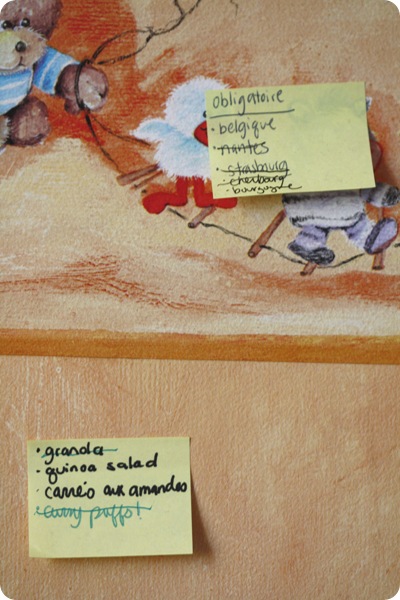 obligatoire
· belgique
· nantes
· strasbourg
· cherbourg
· bourgogne
· granola
· quinoa salad
· carrés aux amandes
· curry puffs!